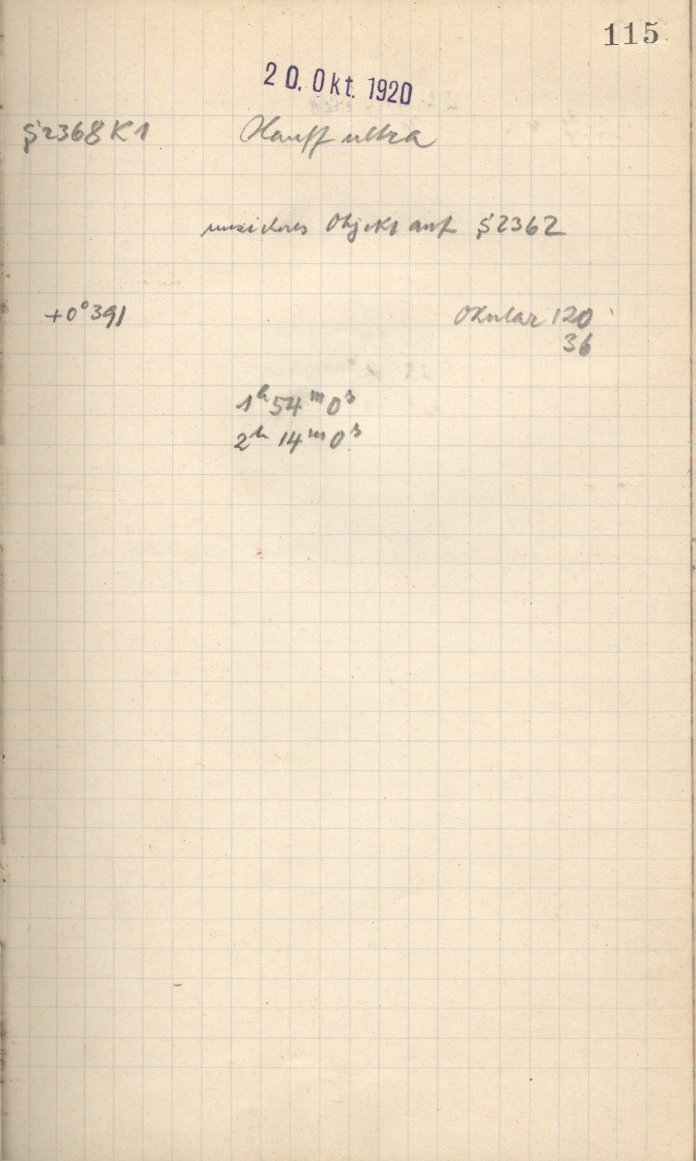 115
20. Okt. 1920
§2368 K1 Hauff ultra
unsicheres Objekt auf §2362
+0°391 Okular 120
36
1ʰ 54ᵐ 0ˢ
2ʰ 14ᵐ 0ˢ